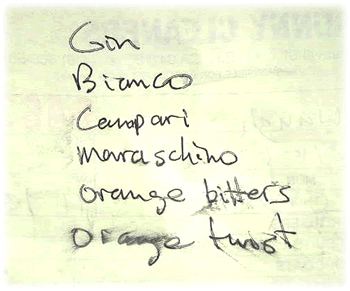 Gin
Bianco
Campari
maraschino
orange bitters
orange twist